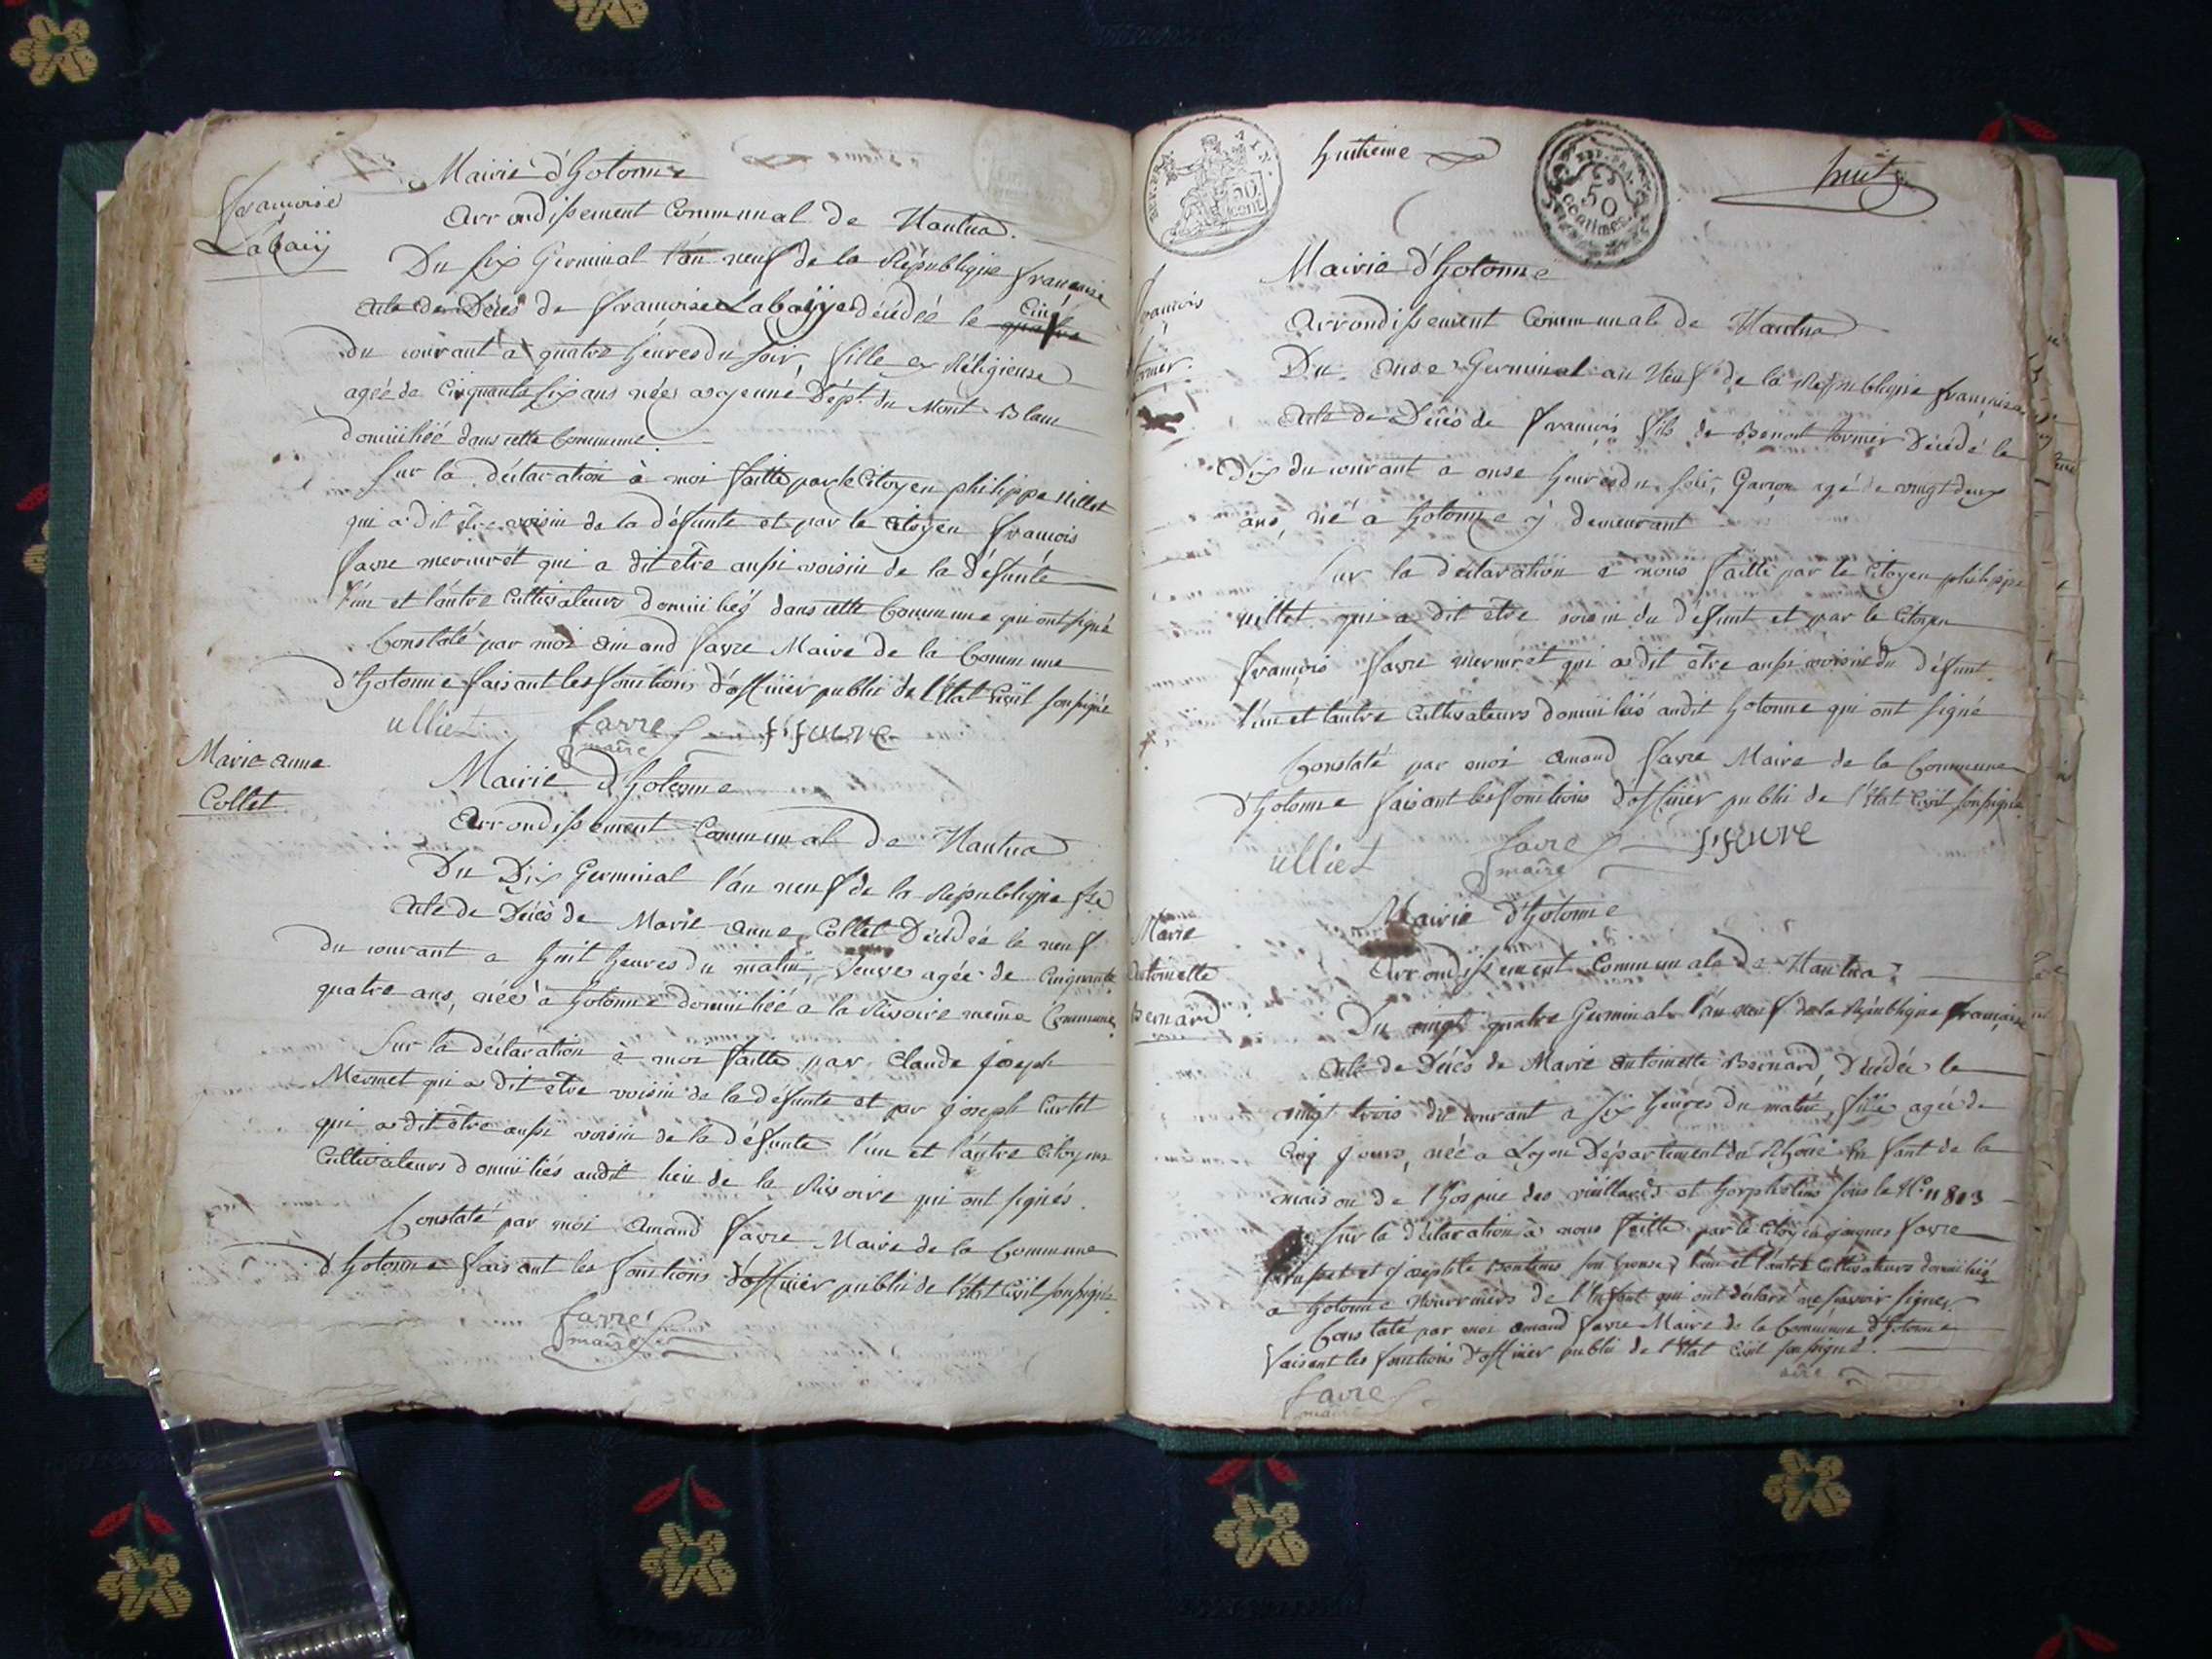 Françoise
Labaÿ
Mairie d'hotonne
Arrondissement Communal de Nantua.
Du six Germinal l'an neuf de la République française
acte de Décès de françoise Labaÿe décédée le quatre cinq
du courant a quatre heures du soir, fille ex Réligieuse
agée de Cinquante six ans née a Dépt. du Mont Blanc
domiciliée dans cette Commune.
Sur la déclaration à moi faitte par le Citoyen philippe ulliet
qui a dit être voisin de la défunte et par le Citoyen françois
favre mermet qui a dit etre aussi voisin de la défunte
l'un et l'autre Cultivateurs domiciliés dans cette Commune qui ont signé
Constaté par moi amand favre Maire de la Commune
d'hotonne faisant les fonctions d'officier public de l'état Civil soussigné
ulliet favre f favre
maire
Marie anne
Collet
Mairie d'hotonne
Arrondissement Communal de Nantua
Du Dix Germinal l'an neuf de la République fse
acte de Décès de Marie anne Collet Décédée le neuf
du courant a huit heures du matin, veuve agée de Cinquante
quatre ans, née a hotonne domiciliée a la Rivoire même Commune
Sur la déclaration à moi faitte par Claude joseph
Mermet qui a dit être voisin de la défunte et par joseph Carlet
qui a dit être aussi voisin de la défunte l'un et l'autre Citoyens
Cultivateurs domiciliés audit lieu de la Rivoire qui ont signés.
Constaté par moi amand favre Maire de la Commune
d'hotonne faisant les fonctions d'officier public de l'état Civil soussigné
favre
maire
REP. FRA.
50
cent.
huitieme
REP. FRA.
50
centimes
huit
françois
Mairie d'hotonne
Arrondissement Communal de Nantua
Du onze Germinal an Neuf de la République française
acte de Décès de françois fils de Benoit Décédé le
Dix du courant a onse heures du soir, Garçon agé de vingt deux
ans, né a hotonne y demeurant
Sur la déclaration à nous faitte par le Citoyen philippe
ulliet qui a dit être voisin du défunt et par le Citoyen
françois favre mermet qui a dit être aussi voisin du défunt
l'un et l'autre Cultivateurs domiciliés audit hotonne qui ont signé
Constaté par moi amand favre Maire de la Commune
d'hotonne faisant les fonctions d'officier public de l'état Civil soussigné.
ulliet favre f favre
maire
Marie
antoinette
Bernard
Mairie d'hotonne
Arrondissement Communal de Nantua
Du vingt quatre Germinal l'an neuf de la République française
acte de Décès de Marie antoinette Bernard, Décédée le
vingt trois du courant a six heures du matin, fille agée de
Cinq jours, née a Lyon Département du Rhône Enfant de la
maison de l'hospice des vieillards et horphelins sous le N° 11813
Sur la déclaration à nous faitte par le Citoyen jaques favre
et josephte son épouse, l'un et l'autre Cultivateurs domiciliés
a hotonne Nourriciers de l'Enfant qui ont déclaré ne savoir signer.
Constaté par moi amand favre Maire de la Commune d'hotonne
faisant les fonctions d'officier public de l'état Civil soussigné.
favre
maire